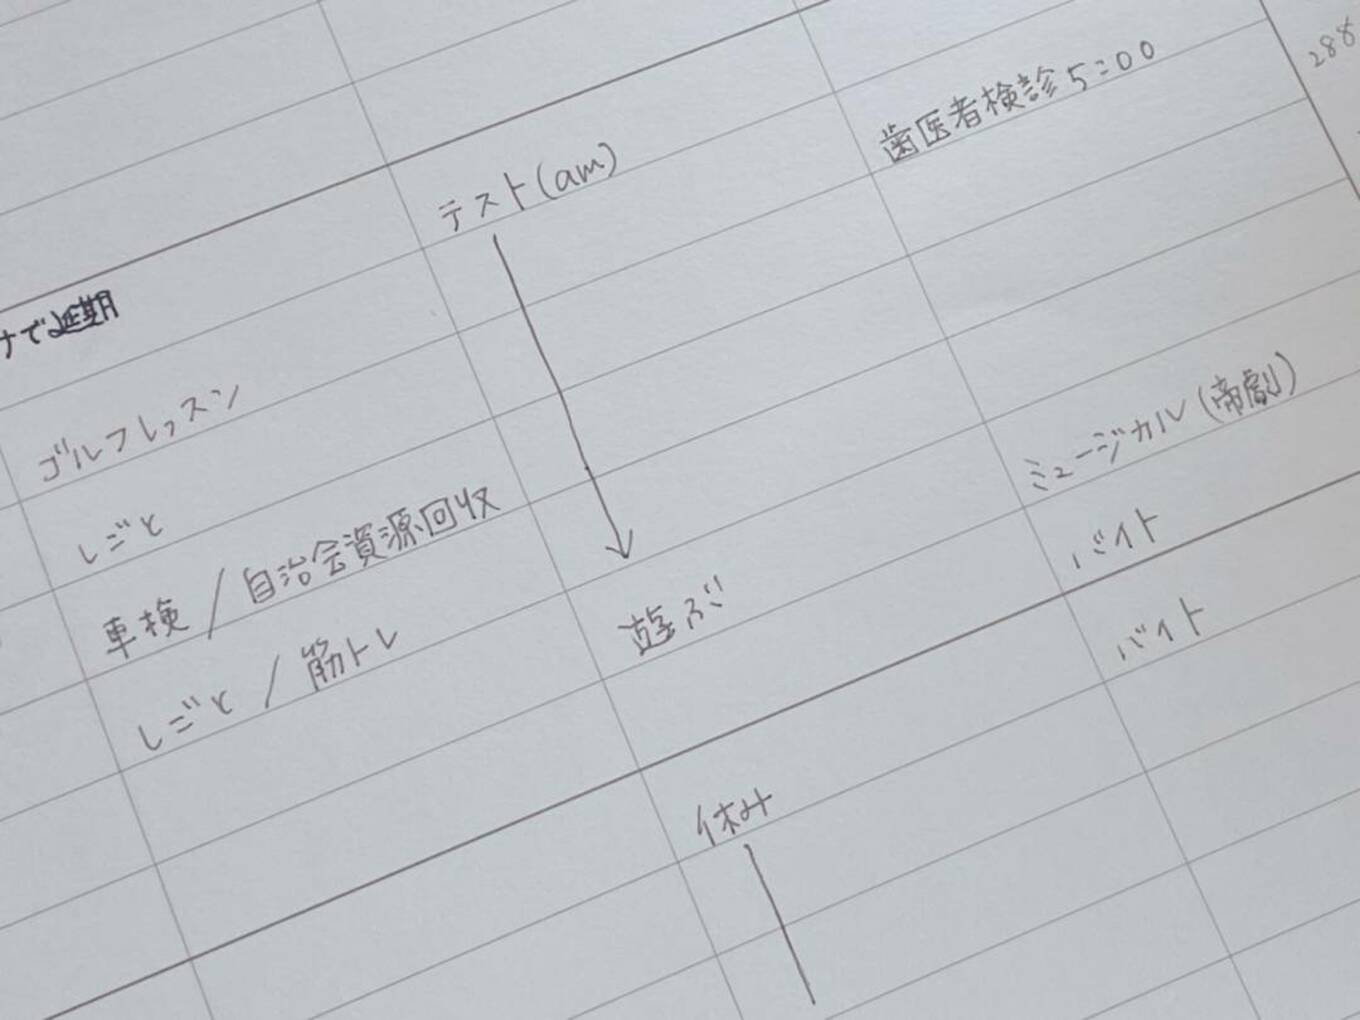 ナで延期
ゴルフレッスン
しごと
車検/自治会資源回収
しごと/筋トレ
テスト(am)
遊ぶ
休み
歯医者検診5:00
ミュージカル(帝劇)
バイト
バイト
288